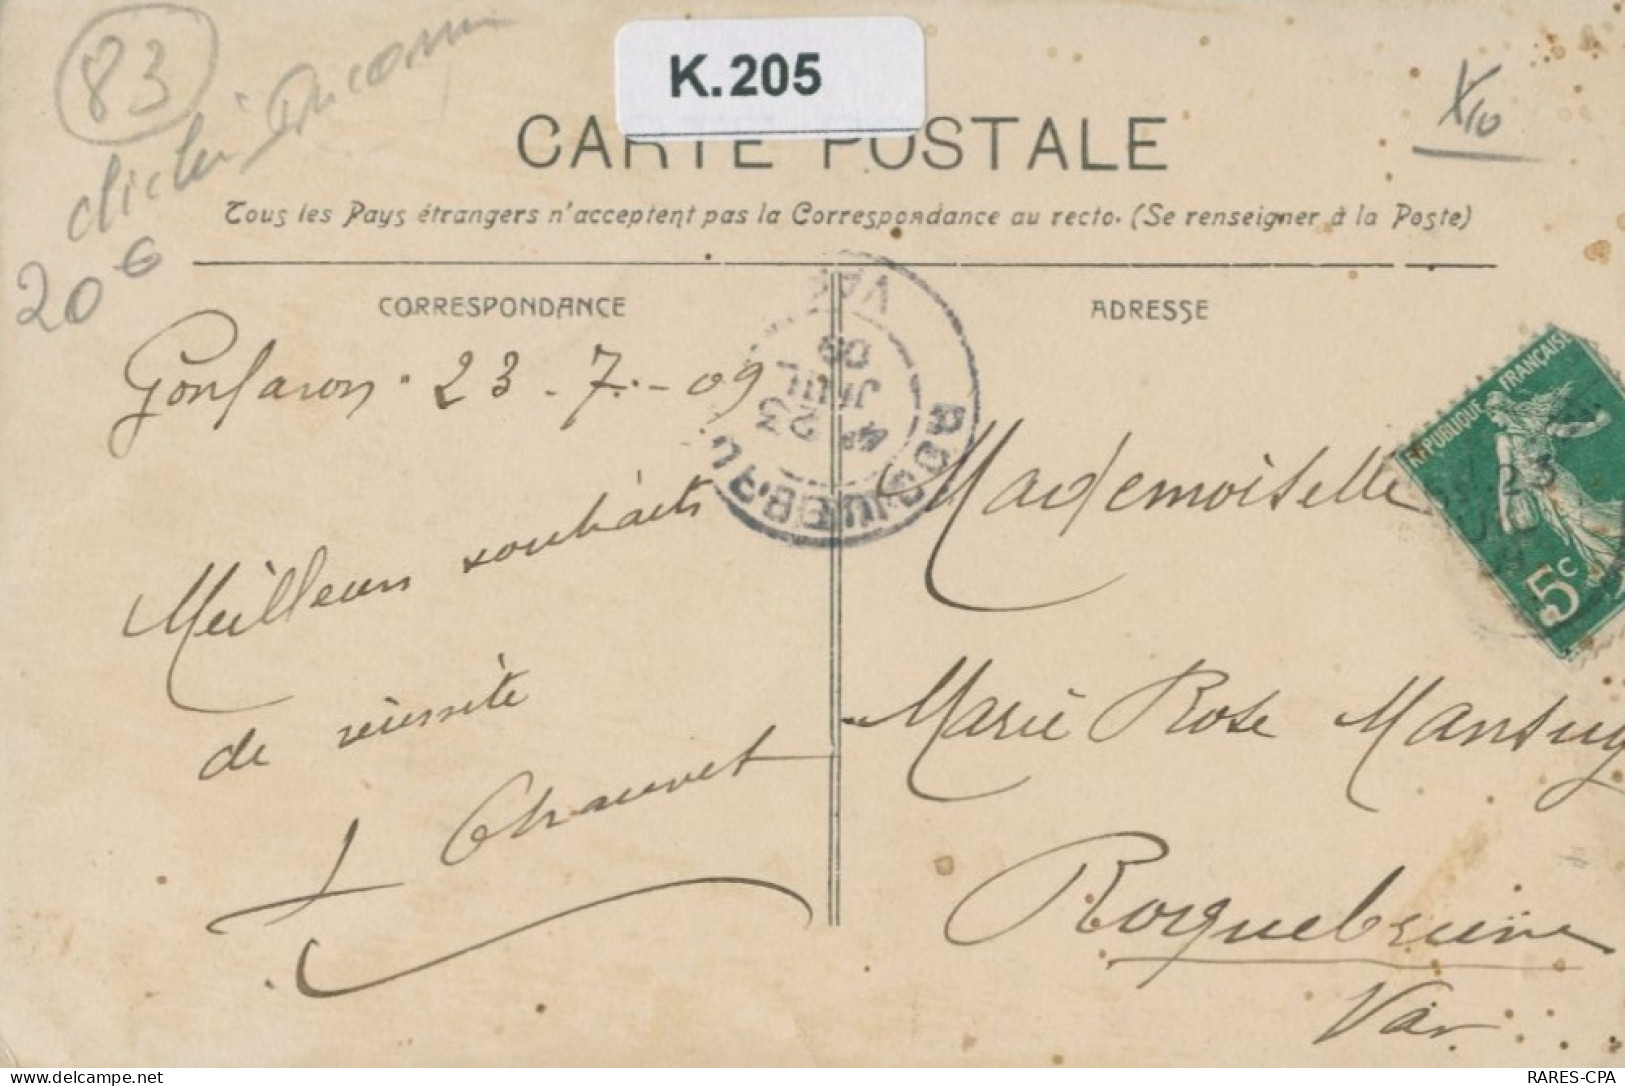 83
K.205
X10
cliché
20€
CARTE POSTALE
Tous les Pays étrangers n'acceptent pas la Correspondance au recto. (Se renseigner à la Poste)
CORRESPONDANCE
ADRESSE
Gonfaron. 23 - 7 - 09
Meilleurs souhaits
de réussite
J Chauvet
ROQUEBRU
VAR
4E 23
JUIL
09
REPUBLIQUE FRANÇAISE
23
5c
Mademoiselle
Marie Rose Mansuy
Roquebrune
Var
RARES-CPA